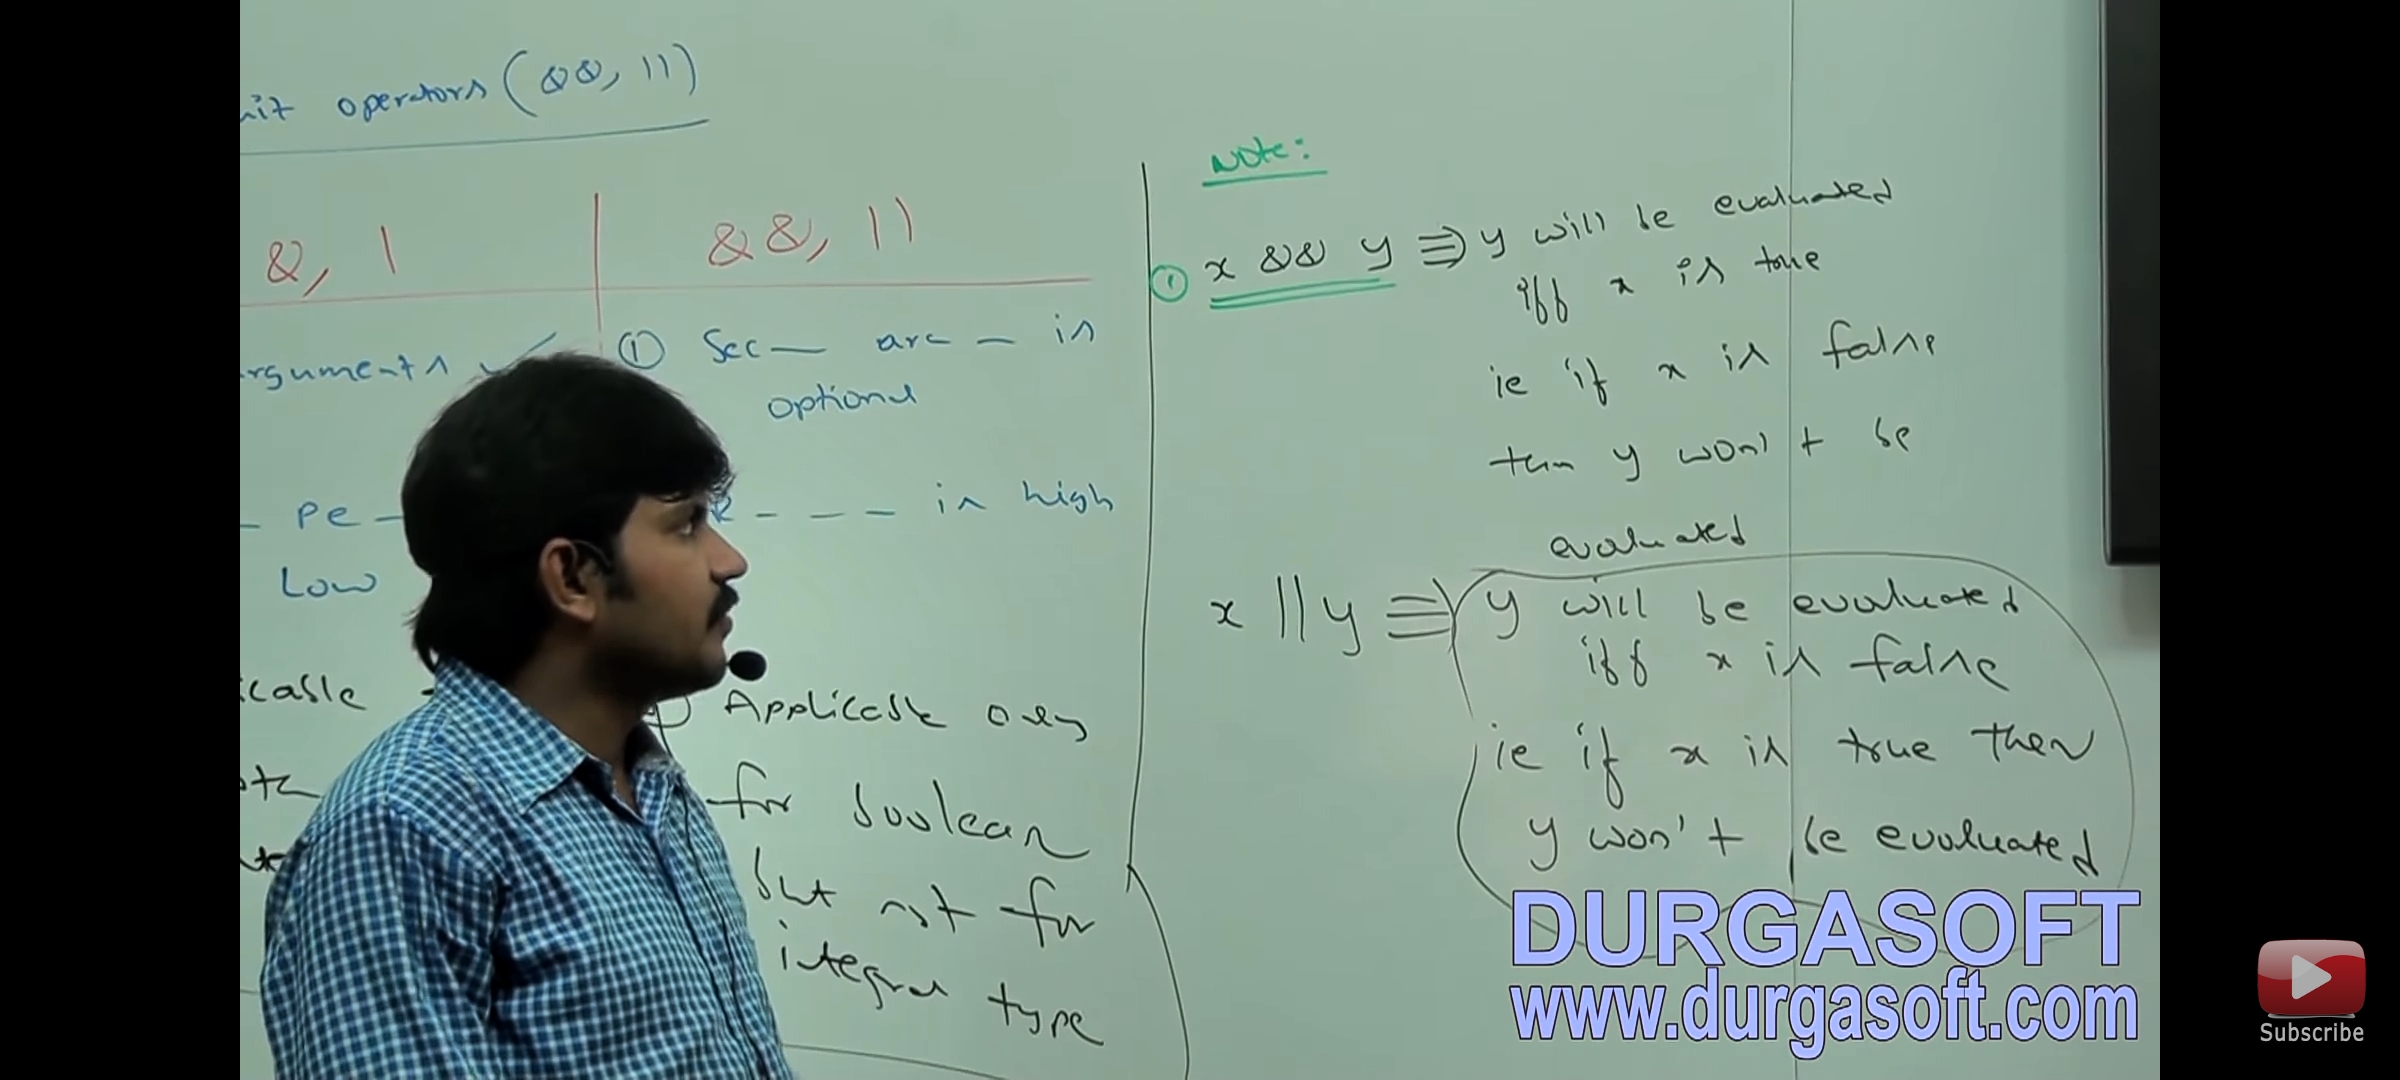 operators (&&, ||)
&, |
&&, ||
rguments ✓
① Sec— arg — is
optional
— Pe —
Low
- - - is high
icable
Applicable only
for boolean
but not for
integral type
Note:
① x && y ⇒ y will be evaluated
iff x is true
ie if x is false
then y won't be
evaluated
x || y ⇒ y will be evaluated
iff x is false
ie if x is true then
y won't be evaluated
DURGASOFT
www.durgasoft.com
Subscribe